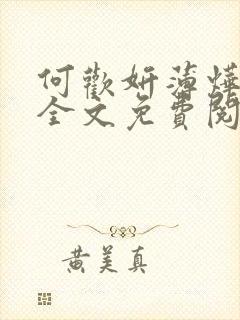 何歡妍蒲燁
全文免費閱
黃美真